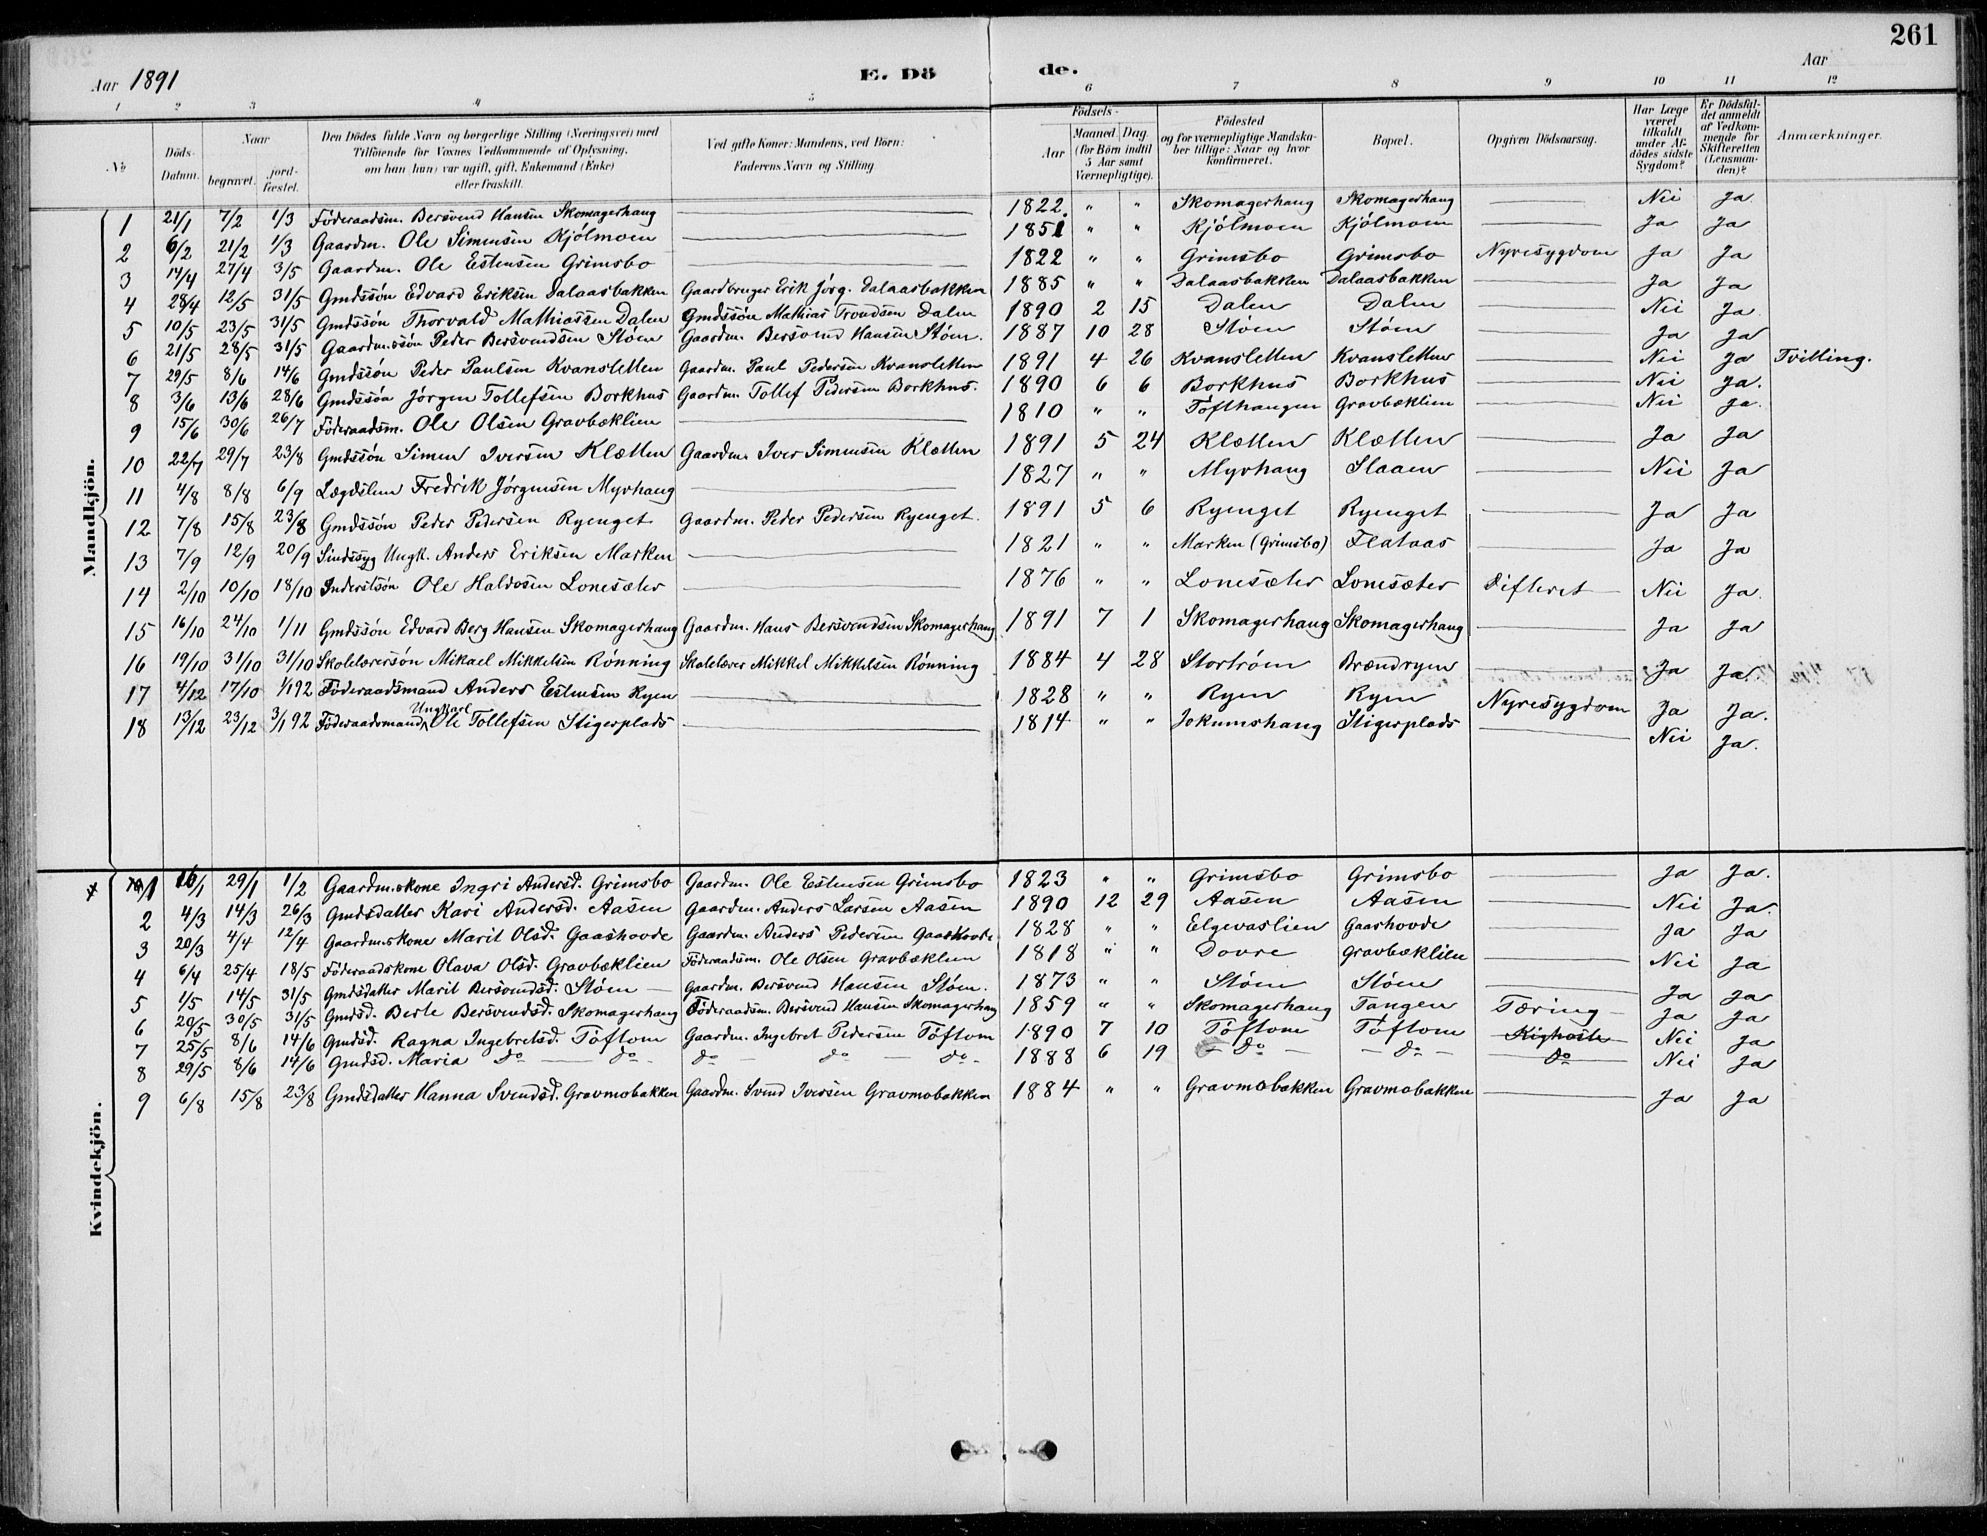 261
Aar 1891 E. Dö de. Aar
1 2 3 4 5 6 7 8 9 10 11 12
No Döds-Datum. Naar begravet. jord-fæstet. Den Dödes fulde Navn og borgerlige Stilling (Næringsvei) med Tilföiende for Voxnes Vedkommende af Oplysning, om han (hun) var ugift, gift, Enkemand (Enke) eller fraskilt. Ved gifte Koner: Mandens, ved Börn: Faderens Navn og Stilling Födsels- Aar Maaned. Dag. (for Börn indtil 5 Aar samt Værnepligtige). Födested og for værnepligtige Mandskaber tillige: Naar og hvor konfirmeret. Bopæl. Opgiven Dödsaarsag. Har Læge været tilkaldt under Afdödes sidste Sygdom? Er Dödsfaldet anmeldt af Vedkommende for Skifteretten (Lensmanden)? Anmærkninger.
Mandkjön.
1 21/1 7/2 1/3 Föderaadsm. Bersvend Hansen Skomagerhaug — 1822 " " Skomagerhaug Skomagerhaug — Nei Ja
2 6/2 21/2 1/3 Gaardm. Ole Simensen Kjölmoen — 1851 " " Kjölmoen Kjölmoen — Ja Ja
3 14/4 27/4 3/5 Gaardm. Ole Estensen Grimsbo — 1822 " " Grimsbo Grimsbo Nyresygdom Ja Ja
4 28/4 12/5 31/5 Gmdssön Edvard Eriksen Dalaasbakken Gaardbruger Erik Jörg. Dalaasbakken 1885 " " Dalaasbakken Dalaasbakken — Ja Ja
5 10/5 23/5 31/5 Gmdssön Thorvald Mathiassen Dalen Gmdssön Mathias Trondsen Dalen 1890 2 15 Dalen Dalen — Nei Ja
6 21/5 28/5 31/5 Gaardm.ssön Peder Bersvendsen Stöen Gaardm. Bersvend Hansen Stöen. 1887 10 28 Stöen Stöen — Ja Ja
7 29/5 8/6 14/6 Gmdssön Peder Paulsen Kvansletten Gaardm. Paul Pedersen Kvansletten 1891 4 26 Kvansletten Kvansletten — Nei Ja Tvilling.
8 3/6 13/6 28/6 Gmdssön Jörgen Tollefsen Borkhus Gaardm. Tollef Pedersen Borkhus. 1890 6 6 Borkhus Borkhus — Nei Ja.
9 15/6 30/6 26/7 Föderaadsm. Ole Olsen Gravbæklien — 1810 " " Töfthaugen Gravbæklien — Nei Ja.
10 22/7 29/7 23/8 Gmdssön Simen Iversen Klætten Gaardm. Iver Simensen Klætten 1891 5 24 Klætten Klætten — Ja Ja
11 4/8 8/8 6/9 Lægdslem Fredrik Jörgensen Myrhaug — 1827 " " Myrhaug Slaaen — Nei Ja
12 7/8 15/8 23/8 Gmdssön Peder Pedersen Ryenget Gaardm. Peder Pedersen Ryenget. 1891 5 6 Ryenget Ryenget — Ja Ja
13 7/9 12/9 20/9 Sindssyg Ungk. Anders Eriksen Marken — 1821 " " Marken (Grimsbo) Flataas — Ja Ja
14 2/10 10/10 18/10 Inderstsön Ole Haldosen Lonesæter — 1876 " " Lonesæter Lonesæter Difterit — Nei Ja.
15 16/10 24/10 1/11 Gmdssön Edvard Berg Hansen Skomagerhaug Gaardm. Hans Bersvendsen Skomagerhaug 1891 7 1 Skomagerhaug Skomagerhaug — Ja Ja
16 19/10 31/10 31/10 Skolelærersön Mikael Mikkelsen Rönning Skolelærer Mikkel Mikkelsen Rönning 1884 4 28 Storström Brændryen — Ja Ja.
17 4/12 17/10 1/1 92 Föderaadsmand Anders Estensen Ryen — 1828 " " Ryen Ryen Nyresygdom Ja Ja.
18 13/12 23/12 3/1 92 Föderaadsmand Ungkarl Ole Tollefsen Stigersplads — 1814 " " Jokumshaug Stigersplads — Nei Ja.
Kvindekjön.
1 16/1 29/1 1/2 Gaardm.skone Ingri Andersd. Grimsbo Gaardm. Ole Estensen Grimsbo 1823 " " Grimsbo Grimsbo — Ja Ja.
2 4/3 14/3 26/3 Gmdsdatter Kari Andersd. Aasen Gaardm. Anders Larsen Aasen 1890 12 29 Aasen Aasen — Nei Ja.
3 20/3 4/4 12/4 Gaardm.skone Marit Olsd. Gaashovde Gaardm. Anders Pedersen Gaashovde 1828 " " Elgevaslien Gaashovde — Ja Ja
4 6/4 25/4 18/5 Föderaadskone Olava Olsd. Gravbæklien Föderaadsm. Ole Olsen Gravbæklien 1818 " " Dovre Gravbæklien — Nei Ja
5 1/5 14/5 31/5 Gmdsdatter Marit Bersvendsd. Stöen — Gaardm. Bersvend Hansen Stöen. 1873 " " Stöen Stöen — Ja Ja
6 20/5 30/5 31/5 Gmdsd. Berte Bersvendsd. Skomagerhaug Föderaadsm. Bersvend Hansen Skomagerhaug 1859 " " Skomagerhaug Tangen Tæring — Ja Ja
7 25/5 8/6 14/6 Gmdsd. Ragna Ingebretsd. Töftom Gaardm. Ingebret Pedersen Töftom 1890 7 10 Töftom Töftom Kighoste Nei Ja
8 29/5 8/6 14/6 Gmdsd. Maria do — do do — do do 1888 6 19 — do — — do — do Nei Ja
9 6/8 15/8 23/8 Gmdsdatter Hanna Svendsd. Gravmobakken Gaardm. Svend Iversen Gravmobakken 1884 " " Gravmobakken Gravmobakken — Ja Ja